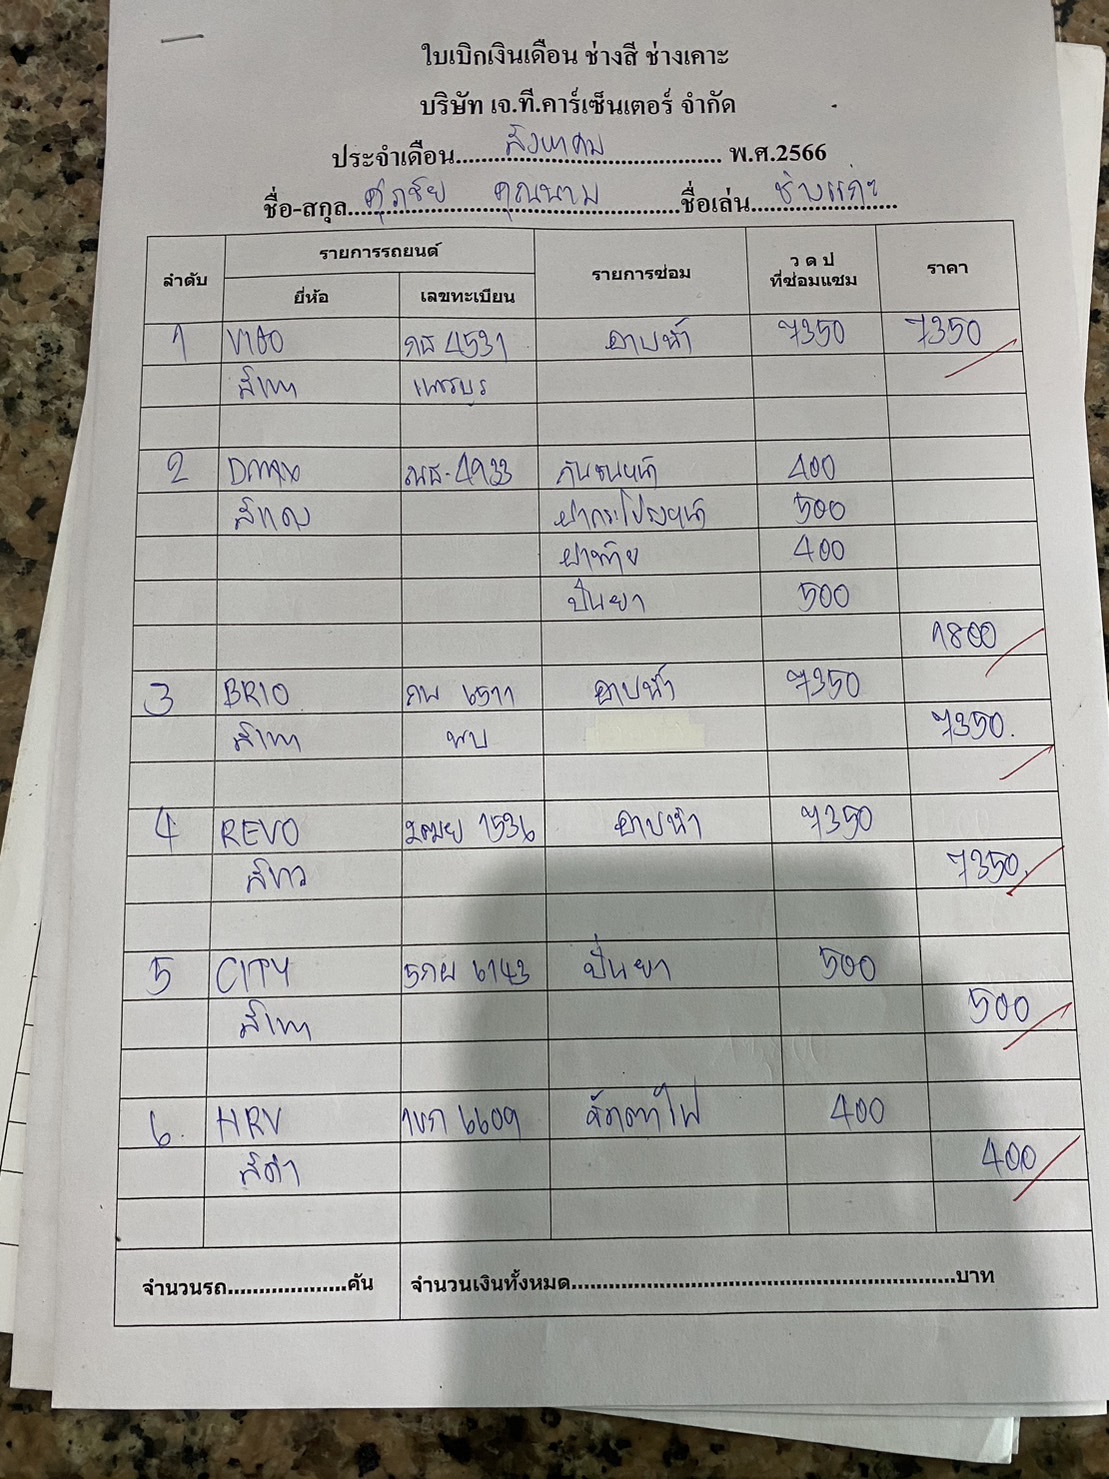 ใบเบิกเงินเดือน ช่างสี ช่างเคาะ
บริษัท เจ.ที.คาร์เซ็นเตอร์ จำกัด
ประจำเดือน สิงหาคม พ.ศ.2566
ชื่อ-สกุล ศุภชัย คุณนาม ชื่อเล่น ช่างแก่ะ
ลำดับ รายการรถยนต์ รายการซ่อม ว ด ป ที่ซ่อมแซม ราคา
ยี่ห้อ เลขทะเบียน
1 VIGO กธ 4531 อาบน้ำ 7350 7350
สีเทา เพชรบุร
2 DMAX 4933 กันชนหน้า 400
สีแดง ฝากระโปรงหน้า 500
ฝาท้าย 400
ปั่นยา 500
1800
3 BRIO กพ 6511 อาบน้ำ 7350
สีเทา พบ 7350.
4 REVO 2ฒย 1536 อาบน้ำ 7350
สีขาว 7350.
5 CITY 5กผ 6143 ปั่นยา 500
สีเทา 500
6. HRV 1ขก 6609 ขัดตาไฟ 400
สีดำ 400
จำนวนรถ คัน จำนวนเงินทั้งหมด บาท